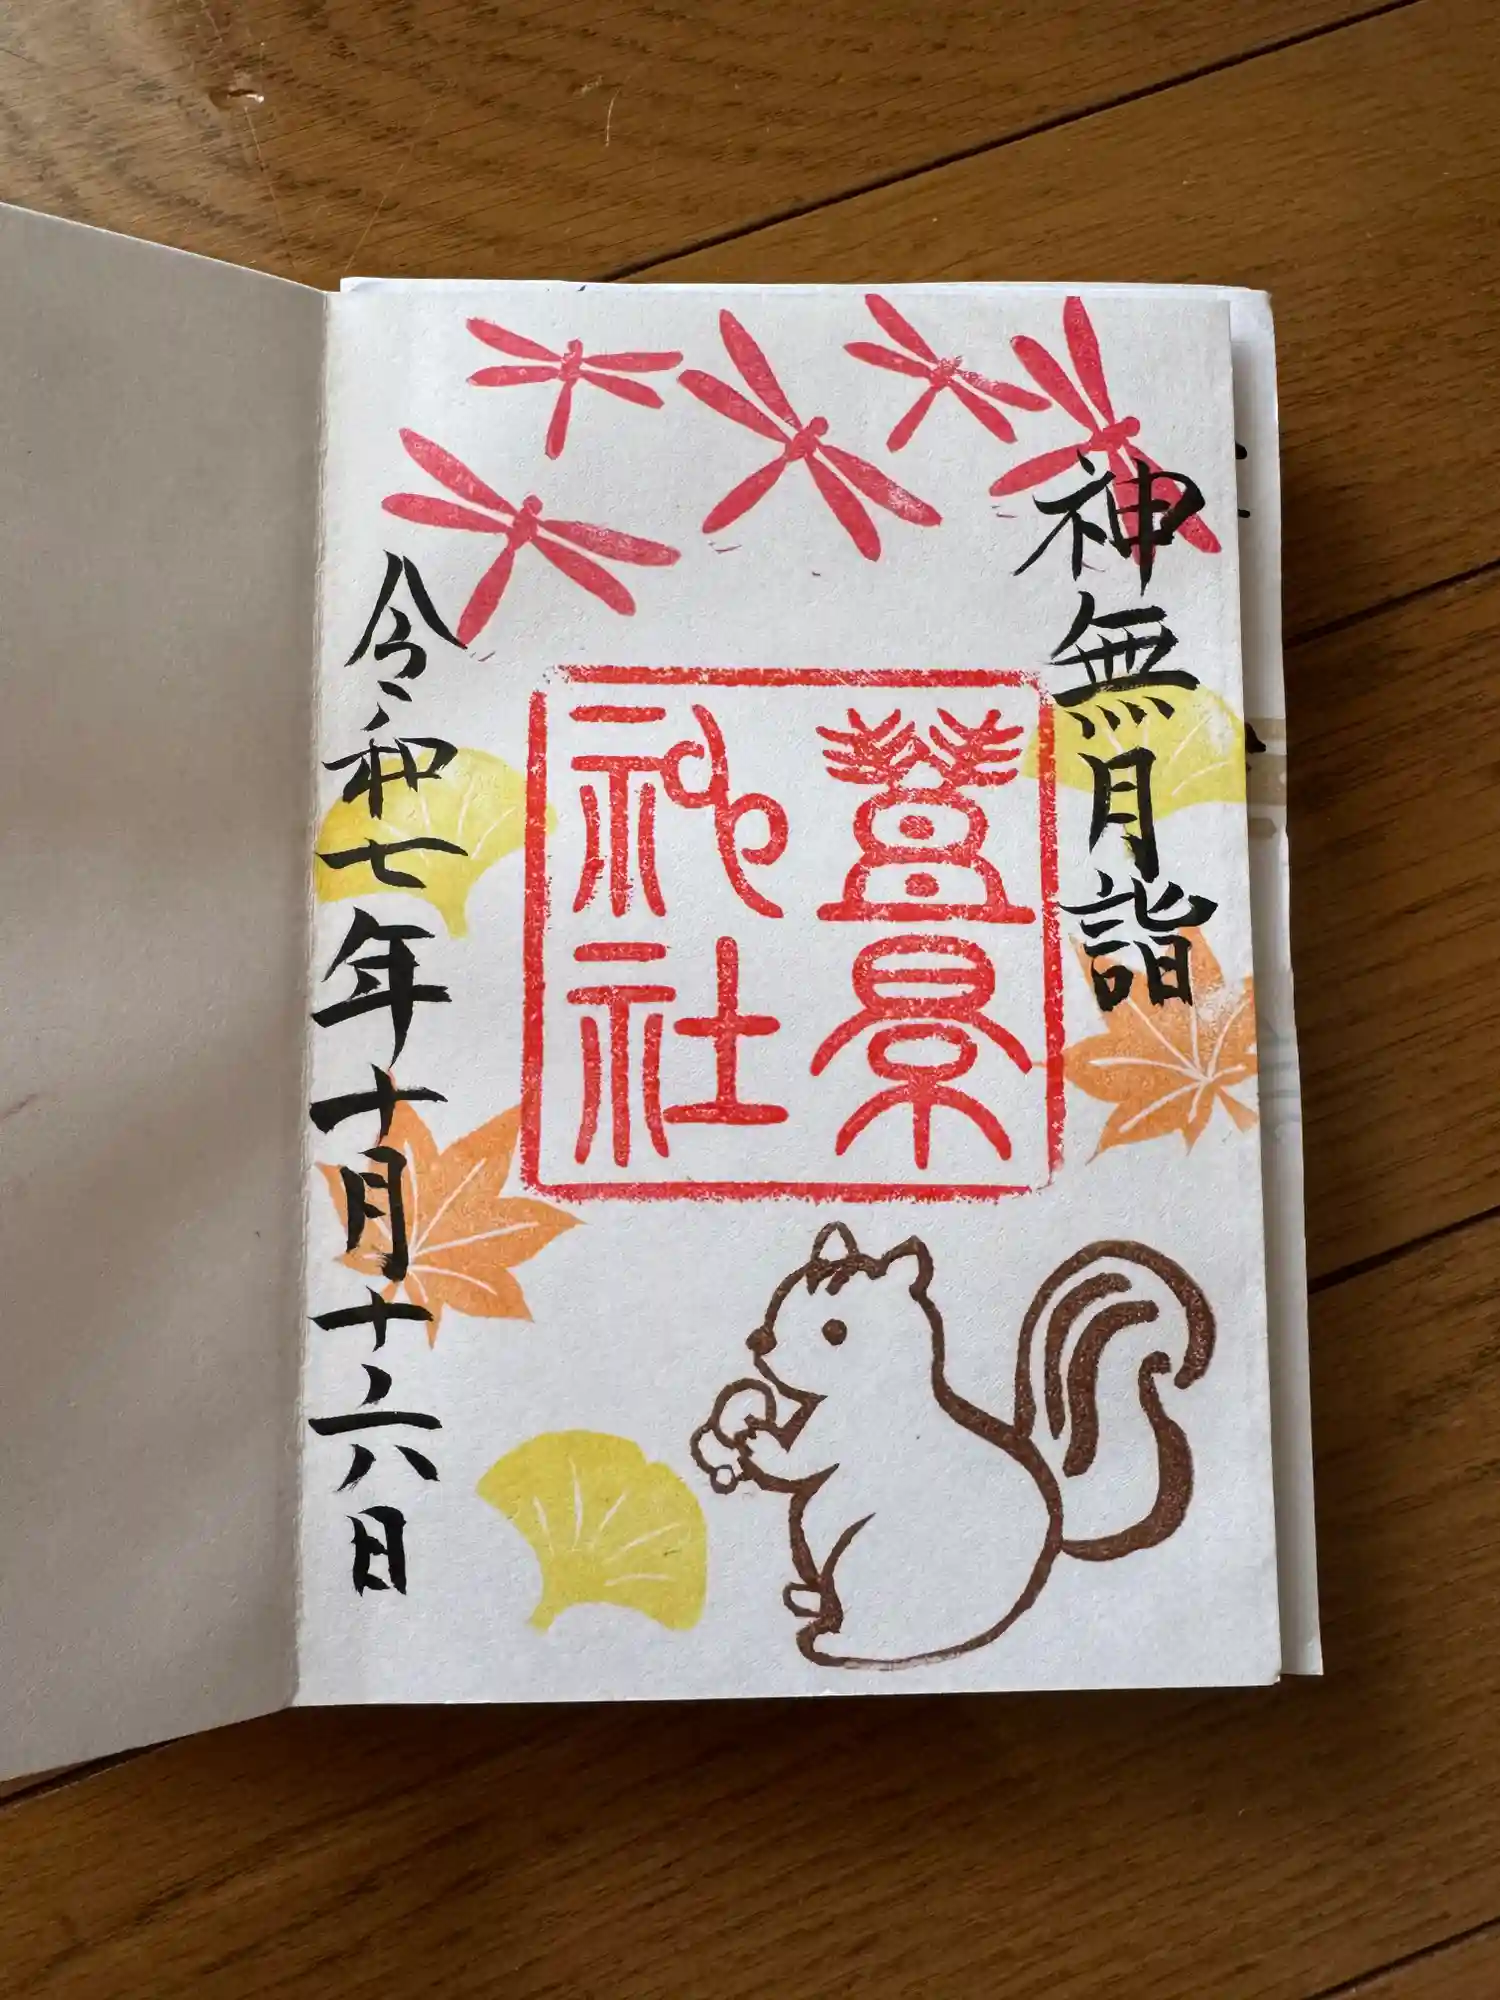 神無月詣
豊景
神社
令和七年十月十六日